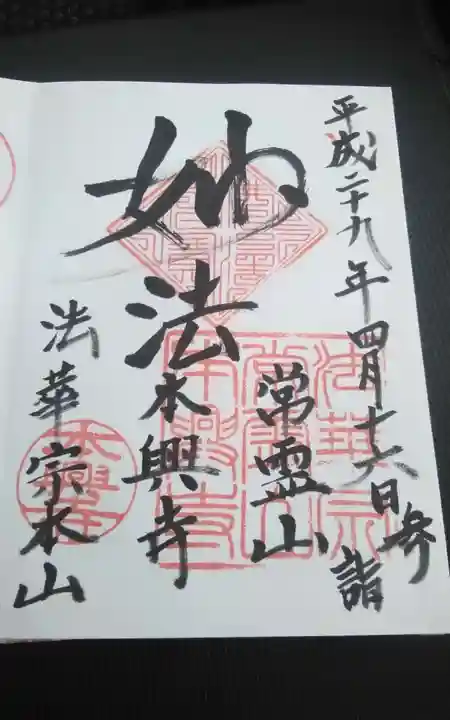 平成二十九年四月十六日参詣
妙法
常霊山
本興寺
法華宗本山